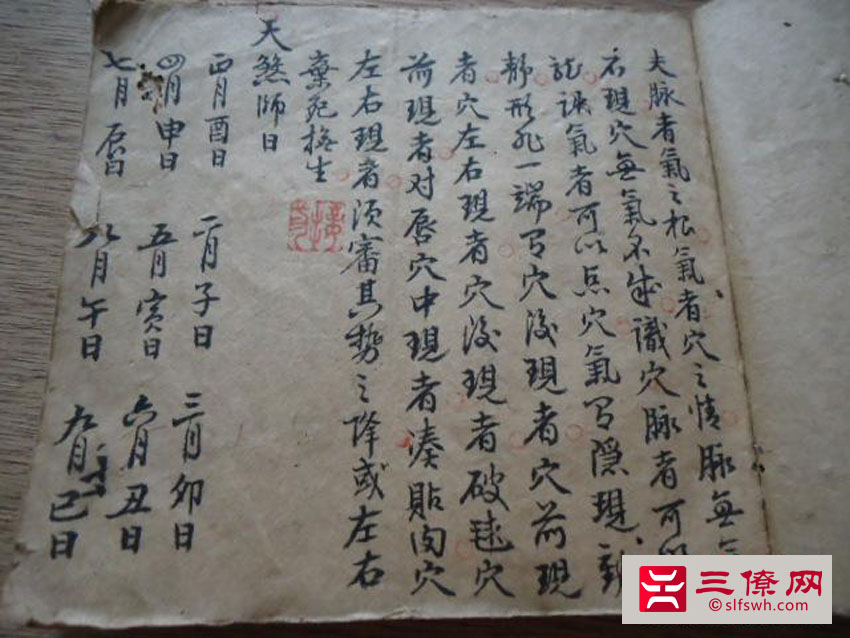 夫脉者氣之根氣者穴之情脉無
不現穴無氣不成識穴脉者可
龍識氣者可以点穴氣有隱現動
静形非一端有穴後現者穴前現
者穴左右現者穴後現者破毬穴
前現者对唇穴中現者凑貼肉穴
左右現者須審其勢之降或左右
棄死挨生
天煞師日
正月酉日 二月子日 三月卯日
四月申日 五月寅日 六月丑日
七月辰日 八月午日 九月巳日
三僚网
©slfswh.com